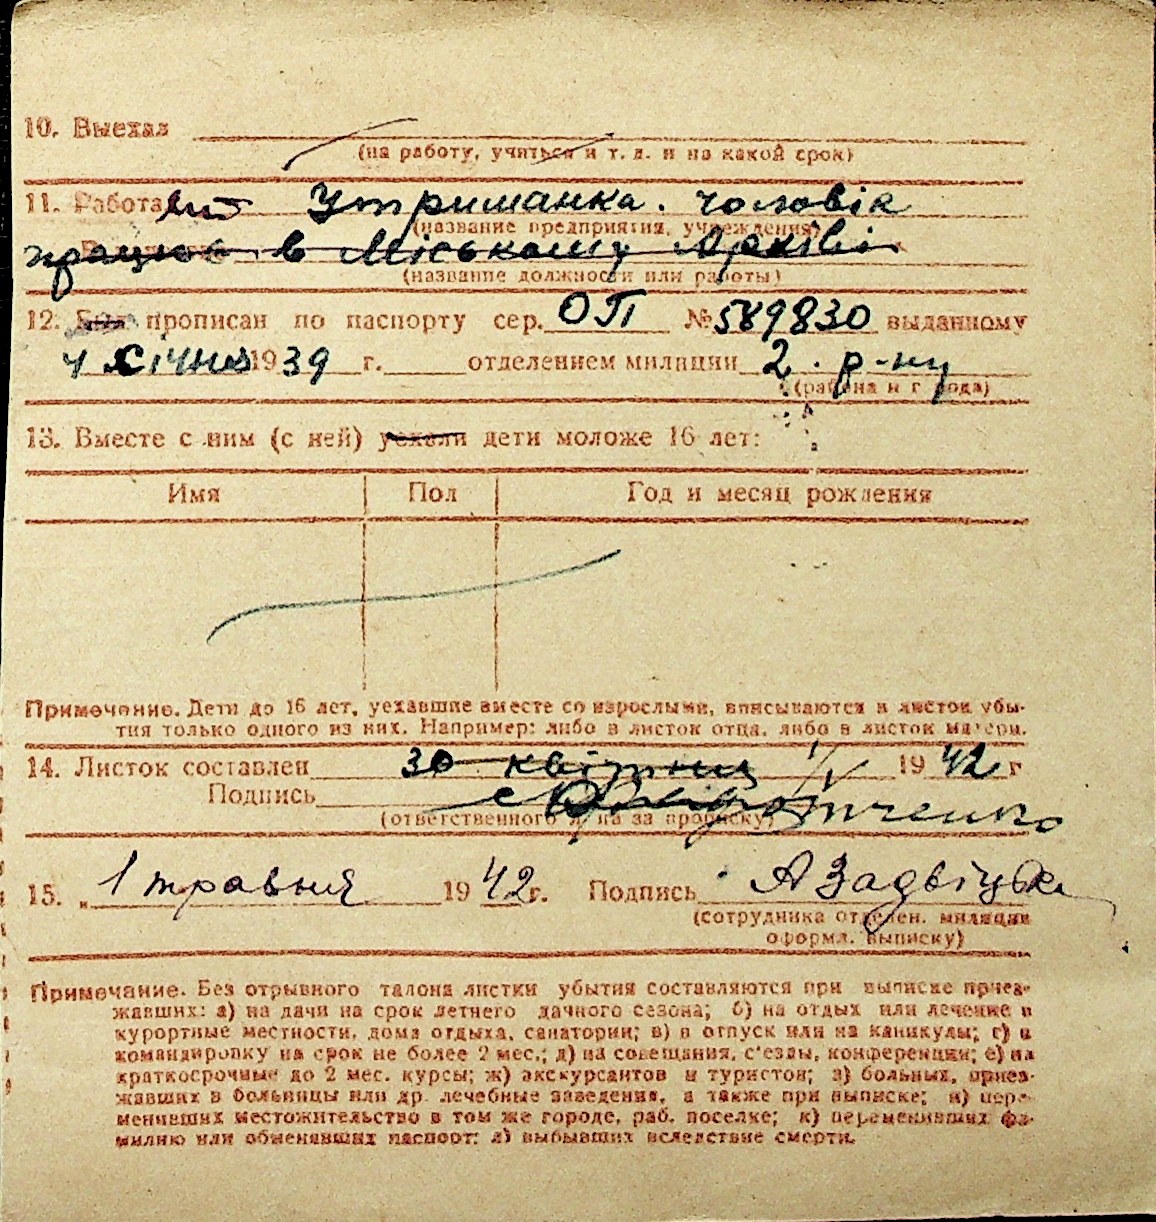 10. Выехал
(на работу, учиться и т. д. и на какой срок)
11. Работа Утриманка. чоловік
(название предприятия, учреждения)
працює в Міському Архіві
(название должности или работы)
12. Был прописан по паспорту сер. ОП № 589830 выданному
4 січня 1939 г. отделением милиции 2. р-ну
(района и г рода)
13. Вместе с ним (с ней) уехали дети моложе 16 лет:
Имя Пол Год и месяц рождения
Примечание. Дети до 16 лет, уехавшие вместе со взрослыми, вписываются в листок убы-
тия только одного из них. Например: либо в листок отца, либо в листок матери.
14. Листок составлен 30 квітня 1/V 1942 г
Подпись
(ответственного за прописку)
15. „ 1 травня 1942 г. Подпись А Задвіцька
(сотрудника отделен. милиции
оформл. выписку)
Примечание. Без отрывного талона листки убытия составляются при выписке приез-
жавших: а) на дачи на срок летнего дачного сезона; б) на отдых или лечение в
курортные местности, дома отдыха, санатории; в) в отпуск или на каникулы; г) в
командировку на срок не более 2 мес.; д) на совещания, с'езды, конференции; е) на
краткосрочные до 2 мес. курсы; ж) экскурсантов и туристов; з) больных, приез-
жавших в больницы или др. лечебные заведения, а также при выписке; и) пере-
менивших местожительство в том же городе, раб. поселке; к) переменивших фа-
милию или обменявших паспорт; л) выбывших вследствие смерти.